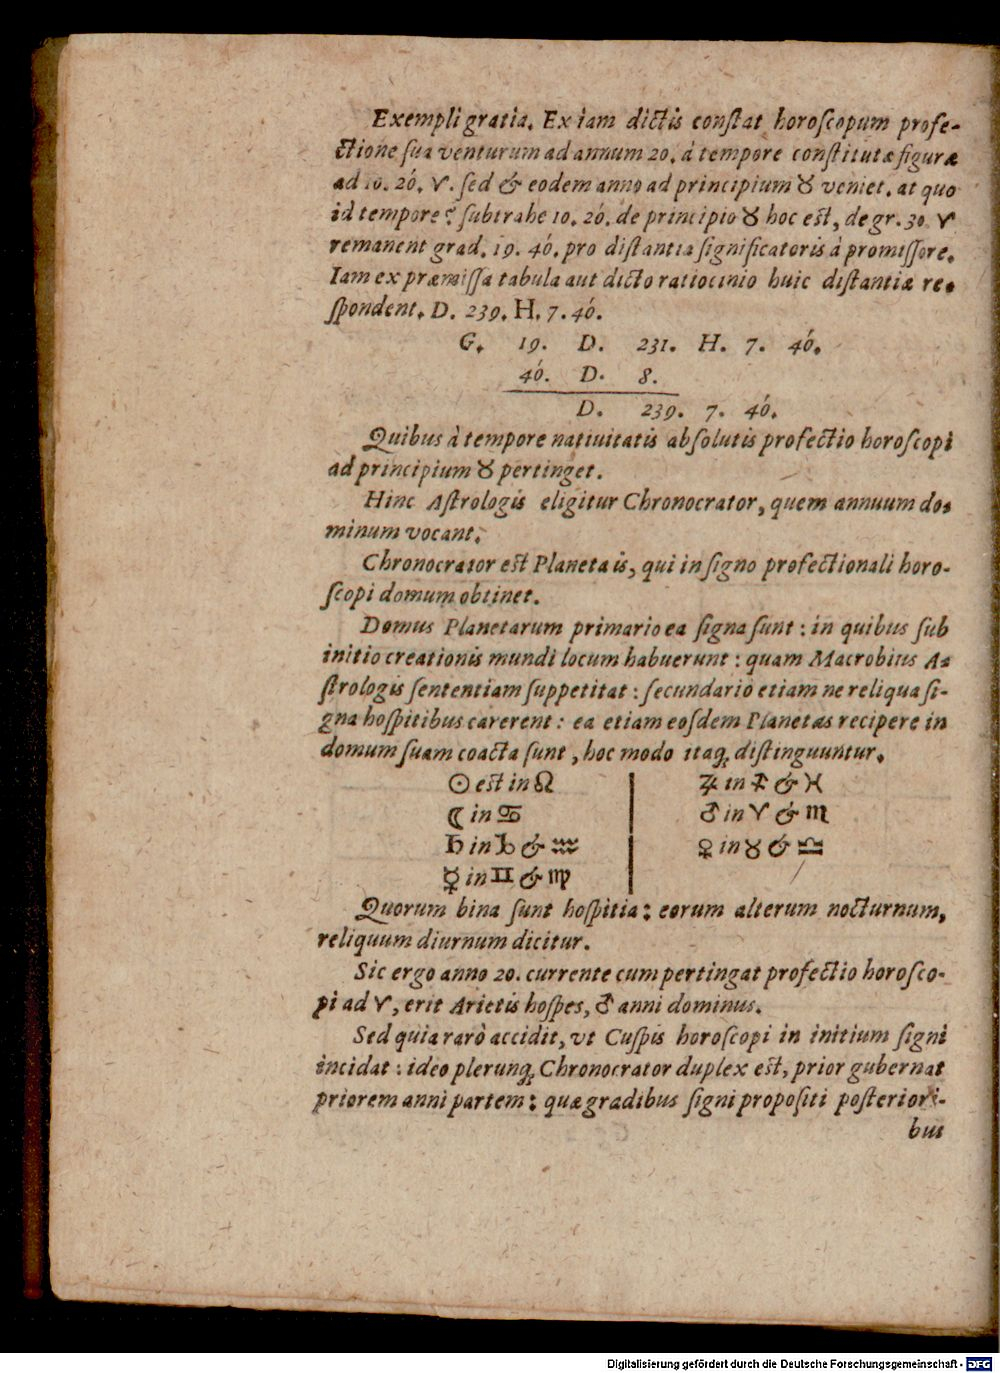 Exempli gratia. Ex iam dictis constat horoscopum profe-
ctione sua venturum ad annum 20. à tempore constitutæ figuræ
ad 10. 20́. ♈. sed & eodem anno ad principium ♉ veniet. at quo
id tempore? subtrahe 10. 20́. de principio ♉ hoc est, de gr. 30 ♈
remanent grad. 19. 40́. pro distantia significatoris à promissore.
Iam ex præmissa tabula aut dicto ratiocinio huic distantiæ re-
spondent. D. 239. H. 7. 40́.
G. 19. D. 231. H. 7. 40́.
40́. D. 8.
D. 239. 7. 40́.
Quibus à tempore natiuitatis absolutis profectio horoscopi
ad principium ♉ pertinget.
Hinc Astrologis eligitur Chronocrator, quem annuum do-
minum vocant.
Chronocrator est Planeta is, qui in signo profectionali horo-
scopi domum obtinet.
Domus Planetarum primario ea signa sunt: in quibus sub
initio creationis mundi locum habuerunt: quam Macrobius A-
strologis sententiam suppetitat: secundariò etiam ne reliqua si-
gna hospitibus carerent: ea etiam eosdem Planetas recipere in
domum suam coacta sunt, hoc modo itaq; distinguuntur.
☉ est in ♌ ♃ in ♐ & ♓
☾ in ♋ ♂ in ♈ & ♏
♄ in ♑ & ♒ ♀ in ♉ & ♎
☿ in ♊ & ♍
Quorum bina sunt hospitia: eorum alterum nocturnum,
reliquum diurnum dicitur.
Sic ergo anno 20. currente cum pertingat profectio horosco-
pi ad ♈, erit Arietis hospes, ♂ anni dominus.
Sed quia rarò accidit, vt Cuspis horoscopi in initium signi
incidat: ideo plerunq; Chronocrator duplex est, prior gubernat
priorem anni partem: quæ gradibus signi propositi posteriori-
bus
Digitalisierung gefördert durch die Deutsche Forschungsgemeinschaft - DFG